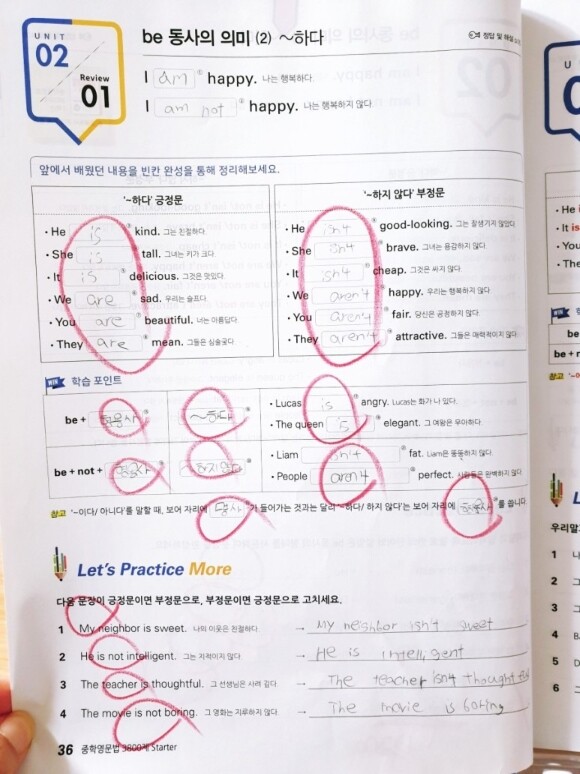 UNIT
02
Review
01
be 동사의 의미 (2) ~하다
정답 및 해설
I am happy. 나는 행복하다.
I am not happy. 나는 행복하지 않다.
앞에서 배웠던 내용을 빈칸 완성을 통해 정리해보세요.
'~하다' 긍정문
'~하지 않다' 부정문
• He is kind. 그는 친절하다.
• She is tall. 그녀는 키가 크다.
• It is delicious. 그것은 맛있다.
• We are sad. 우리는 슬프다.
• You are beautiful. 너는 아름답다.
• They are mean. 그들은 심술궂다.
• He isn't good-looking. 그는 잘생기지 않았다.
• She isn't brave. 그녀는 용감하지 않다.
• It isn't cheap. 그것은 싸지 않다.
• We aren't happy. 우리는 행복하지 않다.
• You aren't fair. 당신은 공정하지 않다.
• They aren't attractive. 그들은 매력적이지 않다.
WIN 학습 포인트
be + 형용사 ~하다
• Lucas is angry. Lucas는 화가 나 있다.
• The queen is elegant. 그 여왕은 우아하다.
be + not + 형용사 ~하지 않다
• Liam isn't fat. Liam은 뚱뚱하지 않다.
• People aren't perfect. 사람들은 완벽하지 않다.
참고 '~이다/ 아니다'를 말할 때, 보어 자리에 명사 가 들어가는 것과는 달리 '~하다/ 하지 않다'는 보어 자리에 형용사 를 씁니다.
Let's Practice More
다음 문장이 긍정문이면 부정문으로, 부정문이면 긍정문으로 고치세요.
1 My neighbor is sweet. 나의 이웃은 친절하다. → My neighbor isn't sweet
2 He is not intelligent. 그는 지적이지 않다. → He is intelligent
3 The teacher is thoughtful. 그 선생님은 사려 깊다. → The teacher isn't thoughtful
4 The movie is not boring. 그 영화는 지루하지 않다. → The movie is boring
36 중학영문법 3800제 Starter
U
0
• He
• It is
• You
• The
WIN
be +
be + n
참고
L
우리말
1
2 그
3 그
4
5
6 그